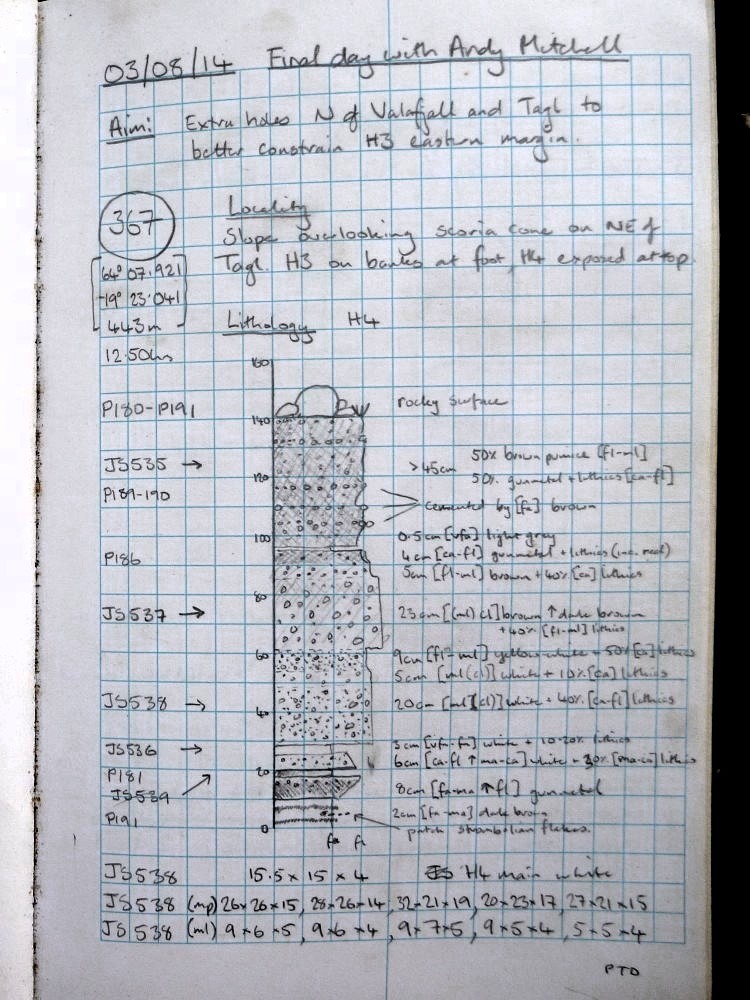 03/08/14 Final day with Andy Mitchell
Aim: Extra holes N of Valafjall and Tagl to
better constrain H3 eastern margin.
367
Locality
Slope overlooking scoria cone on NE of
Tagl. H3 on banks at foot, H4 exposed at top.
64° 07.921
-19° 23.041
443m
12.50hrs
Lithology H4
160
P180-P191
rocky surface
140
JS535 →
>45cm
50% brown pumice [fl-ml]
50% gunmetal + lithics [ca-fl]
120
P189-190
cemented by [fa] brown
100
0.5cm [vfa] light grey
P186
4cm [ca-fl] gunmetal + lithics (inc. )
5cm [fl-ml] brown + 40% [ca] lithics
80
JS537 →
23cm [(ml) cl] brown ↑ dark brown
+ 40% [fl-ml] lithics
60
9cm [fl-ml] yellow-white + 50% [ca] lithics
5cm [ml(cl)] white + 10% [ca] lithics
JS538 →
20cm [ml(cl)] white + 40% [ca-fl] lithics
40
JS536 →
3cm [vfa-fa] white + 10-20% lithics
6cm [ca-fl ↑ ma-ca] white + 30% [ma-ca] lithics
P181
20
JS539
8cm [fa-ma ↑ fl] gunmetal
P191
2cm [fa-ma] dark brown
patch strombolian flakes.
0
fa fl
JS538 15.5 × 15 × 4 H4 main white
JS538 (mp) 26×26×15, 28×26×14, 32×21×19, 20×23×17, 27×21×15
JS538 (ml) 9×6×5, 9×6×4, 9×7×5, 9×5×4, 5×5×4
PTO